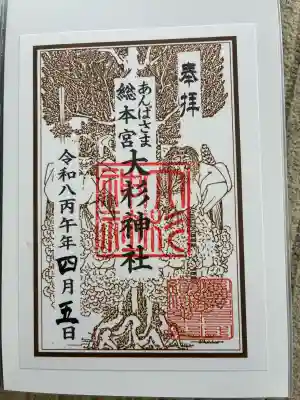 奉拝
あんばさま
総本宮
大杉神社
令和八丙午年四月五日